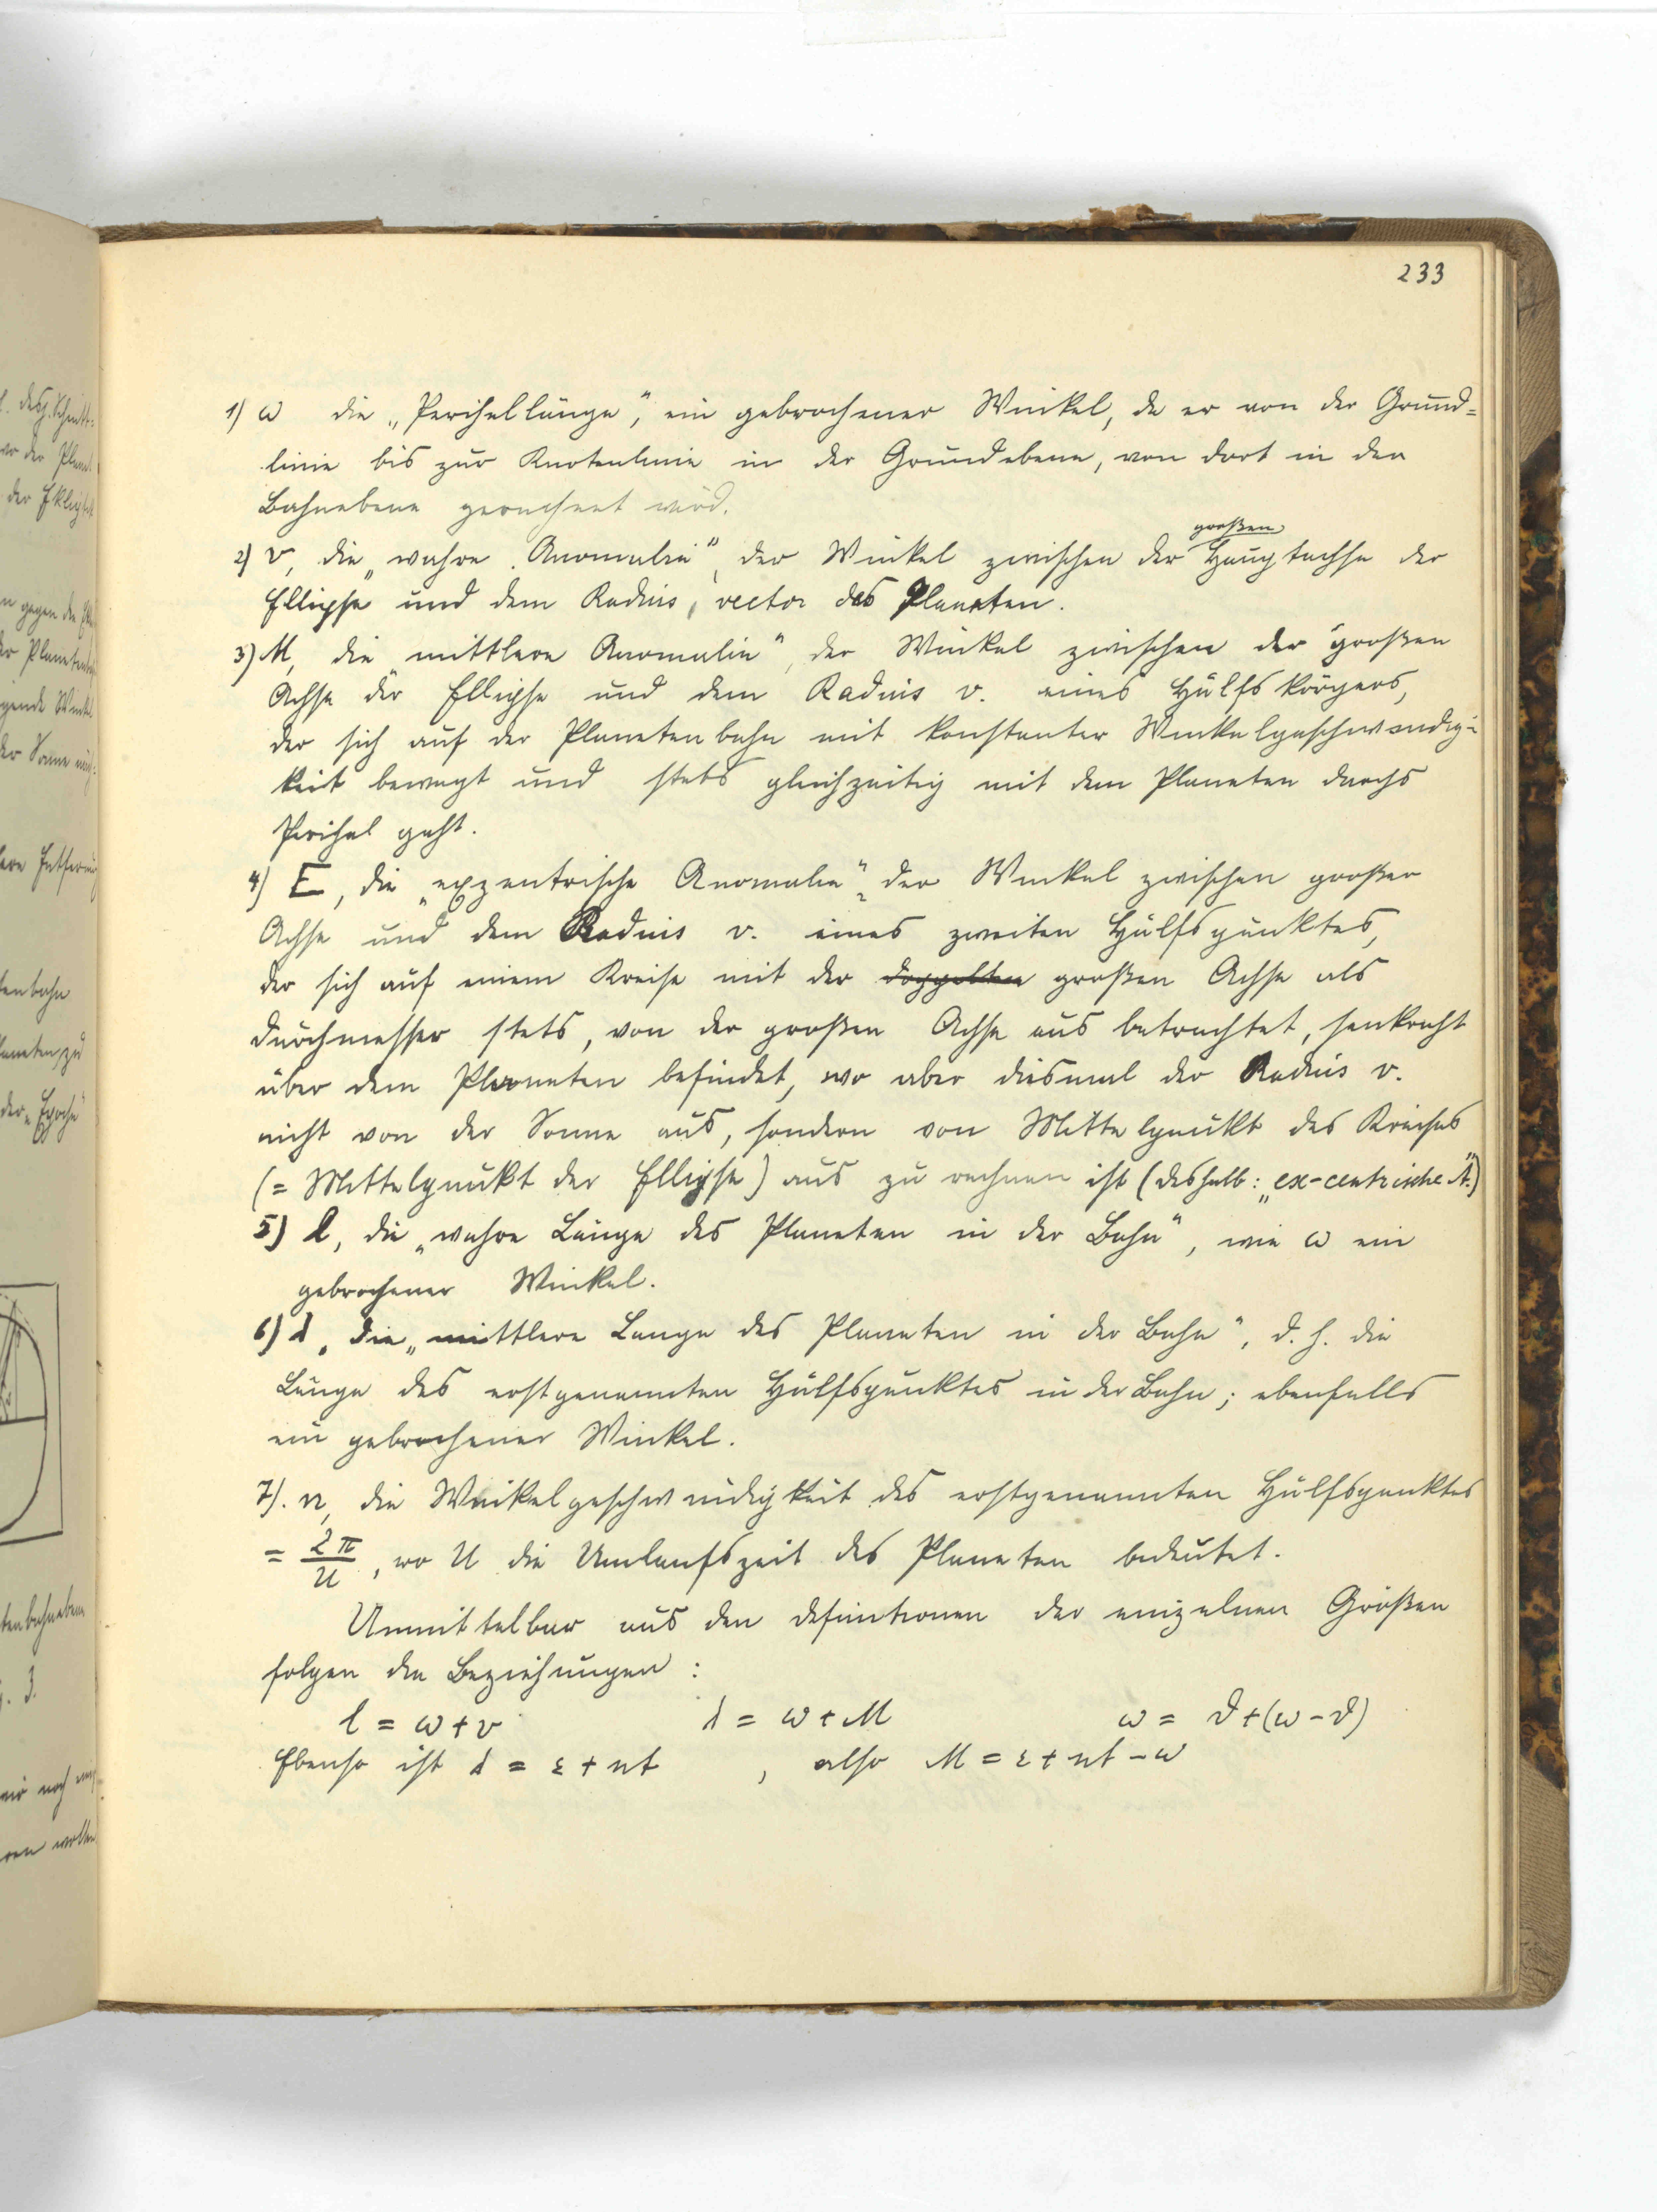 233
1) ω die „Perihellänge", ein gebrochener Winkel, da er von der Grund=
linie bis zur Knotenlinie in der Grundebene, von dort in der
Bahnebene gerechnet wird.
2) v, die „wahre Anomalie", der Winkel zwischen der großen Hauptachse der
Ellipse und dem Radius vector des Planeten.
3) M, die „mittlere Anomalie", der Winkel zwischen der großen
Achse der Ellipse und dem Radius v. eines Hülfskörpers,
der sich auf der Planetenbahn mit konstanter Winkelgeschwindig=
keit bewegt und stets gleichzeitig mit dem Planeten durchs
Perihel geht.
4) E, die „exzentrische Anomalie", der Winkel zwischen großer
Achse und dem Radius v. eines zweiten Hülfspunktes,
der sich auf einem Kreise mit der doppelten großen Achse als
Durchmesser stets, von der großen Achse aus betrachtet, senkrecht
über dem Planeten befindet, wo aber diesmal der Radius v.
nicht von der Sonne aus, sondern von Mittelpunkt des Kreises
(= Mittelpunkt der Ellipse) aus zu rechnen ist (deshalb: „ex-centrische A.")
5) l, die „wahre Länge des Planeten in der Bahn", wie ω ein
gebrochener Winkel.
6) λ, die „mittlere Länge des Planeten in der Bahn", d. h. die
Länge des erstgenannten Hülfspunktes in der Bahn; ebenfalls
ein gebrochener Winkel.
7). n, die Winkelgeschwindigkeit des erstgenannten Hülfspunktes
= 2π/U, wo U die Umlaufszeit des Planeten bedeutet.
Unmittelbar aus den Definitionen der einzelnen Größen
folgen die Beziehungen:
l = ω + v λ = ω + M ω = ϑ + (ω − ϑ)
Ebenso ist λ = ε + nt , also M = ε + nt − ω